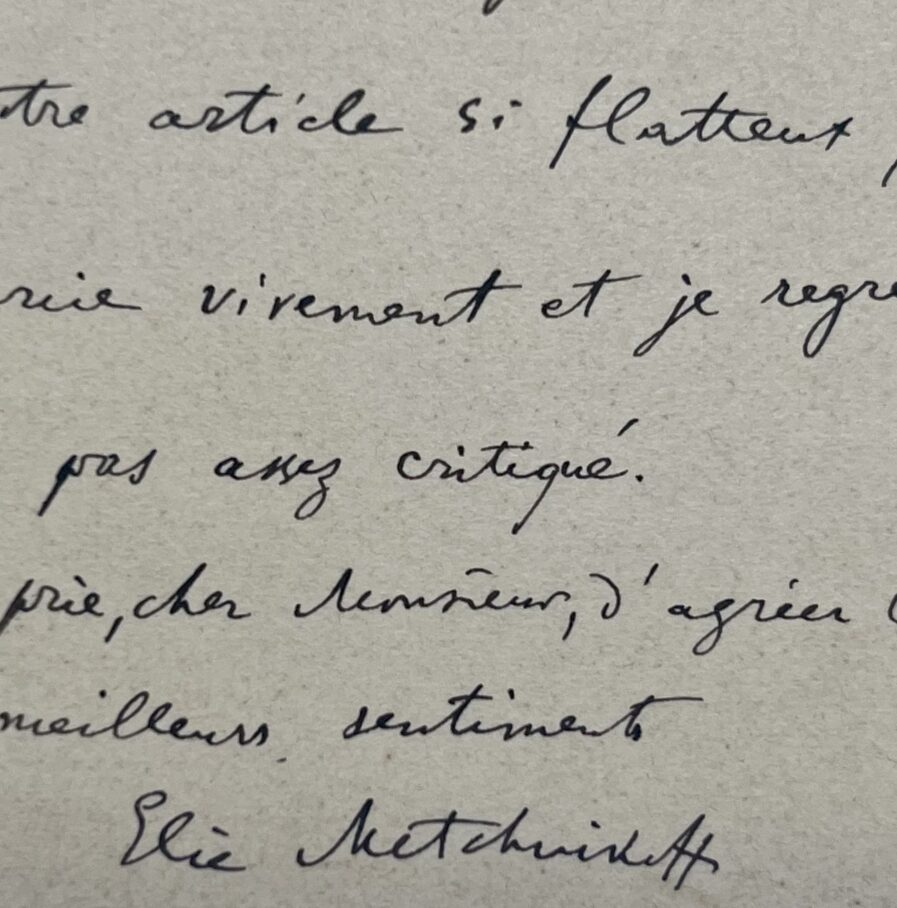 tre article si flatteux
rcie vivement et je regre
pas assez critiqué.
prie, cher Monsieur, d'agréer
meilleurs sentiments
Elie Metchnikoff